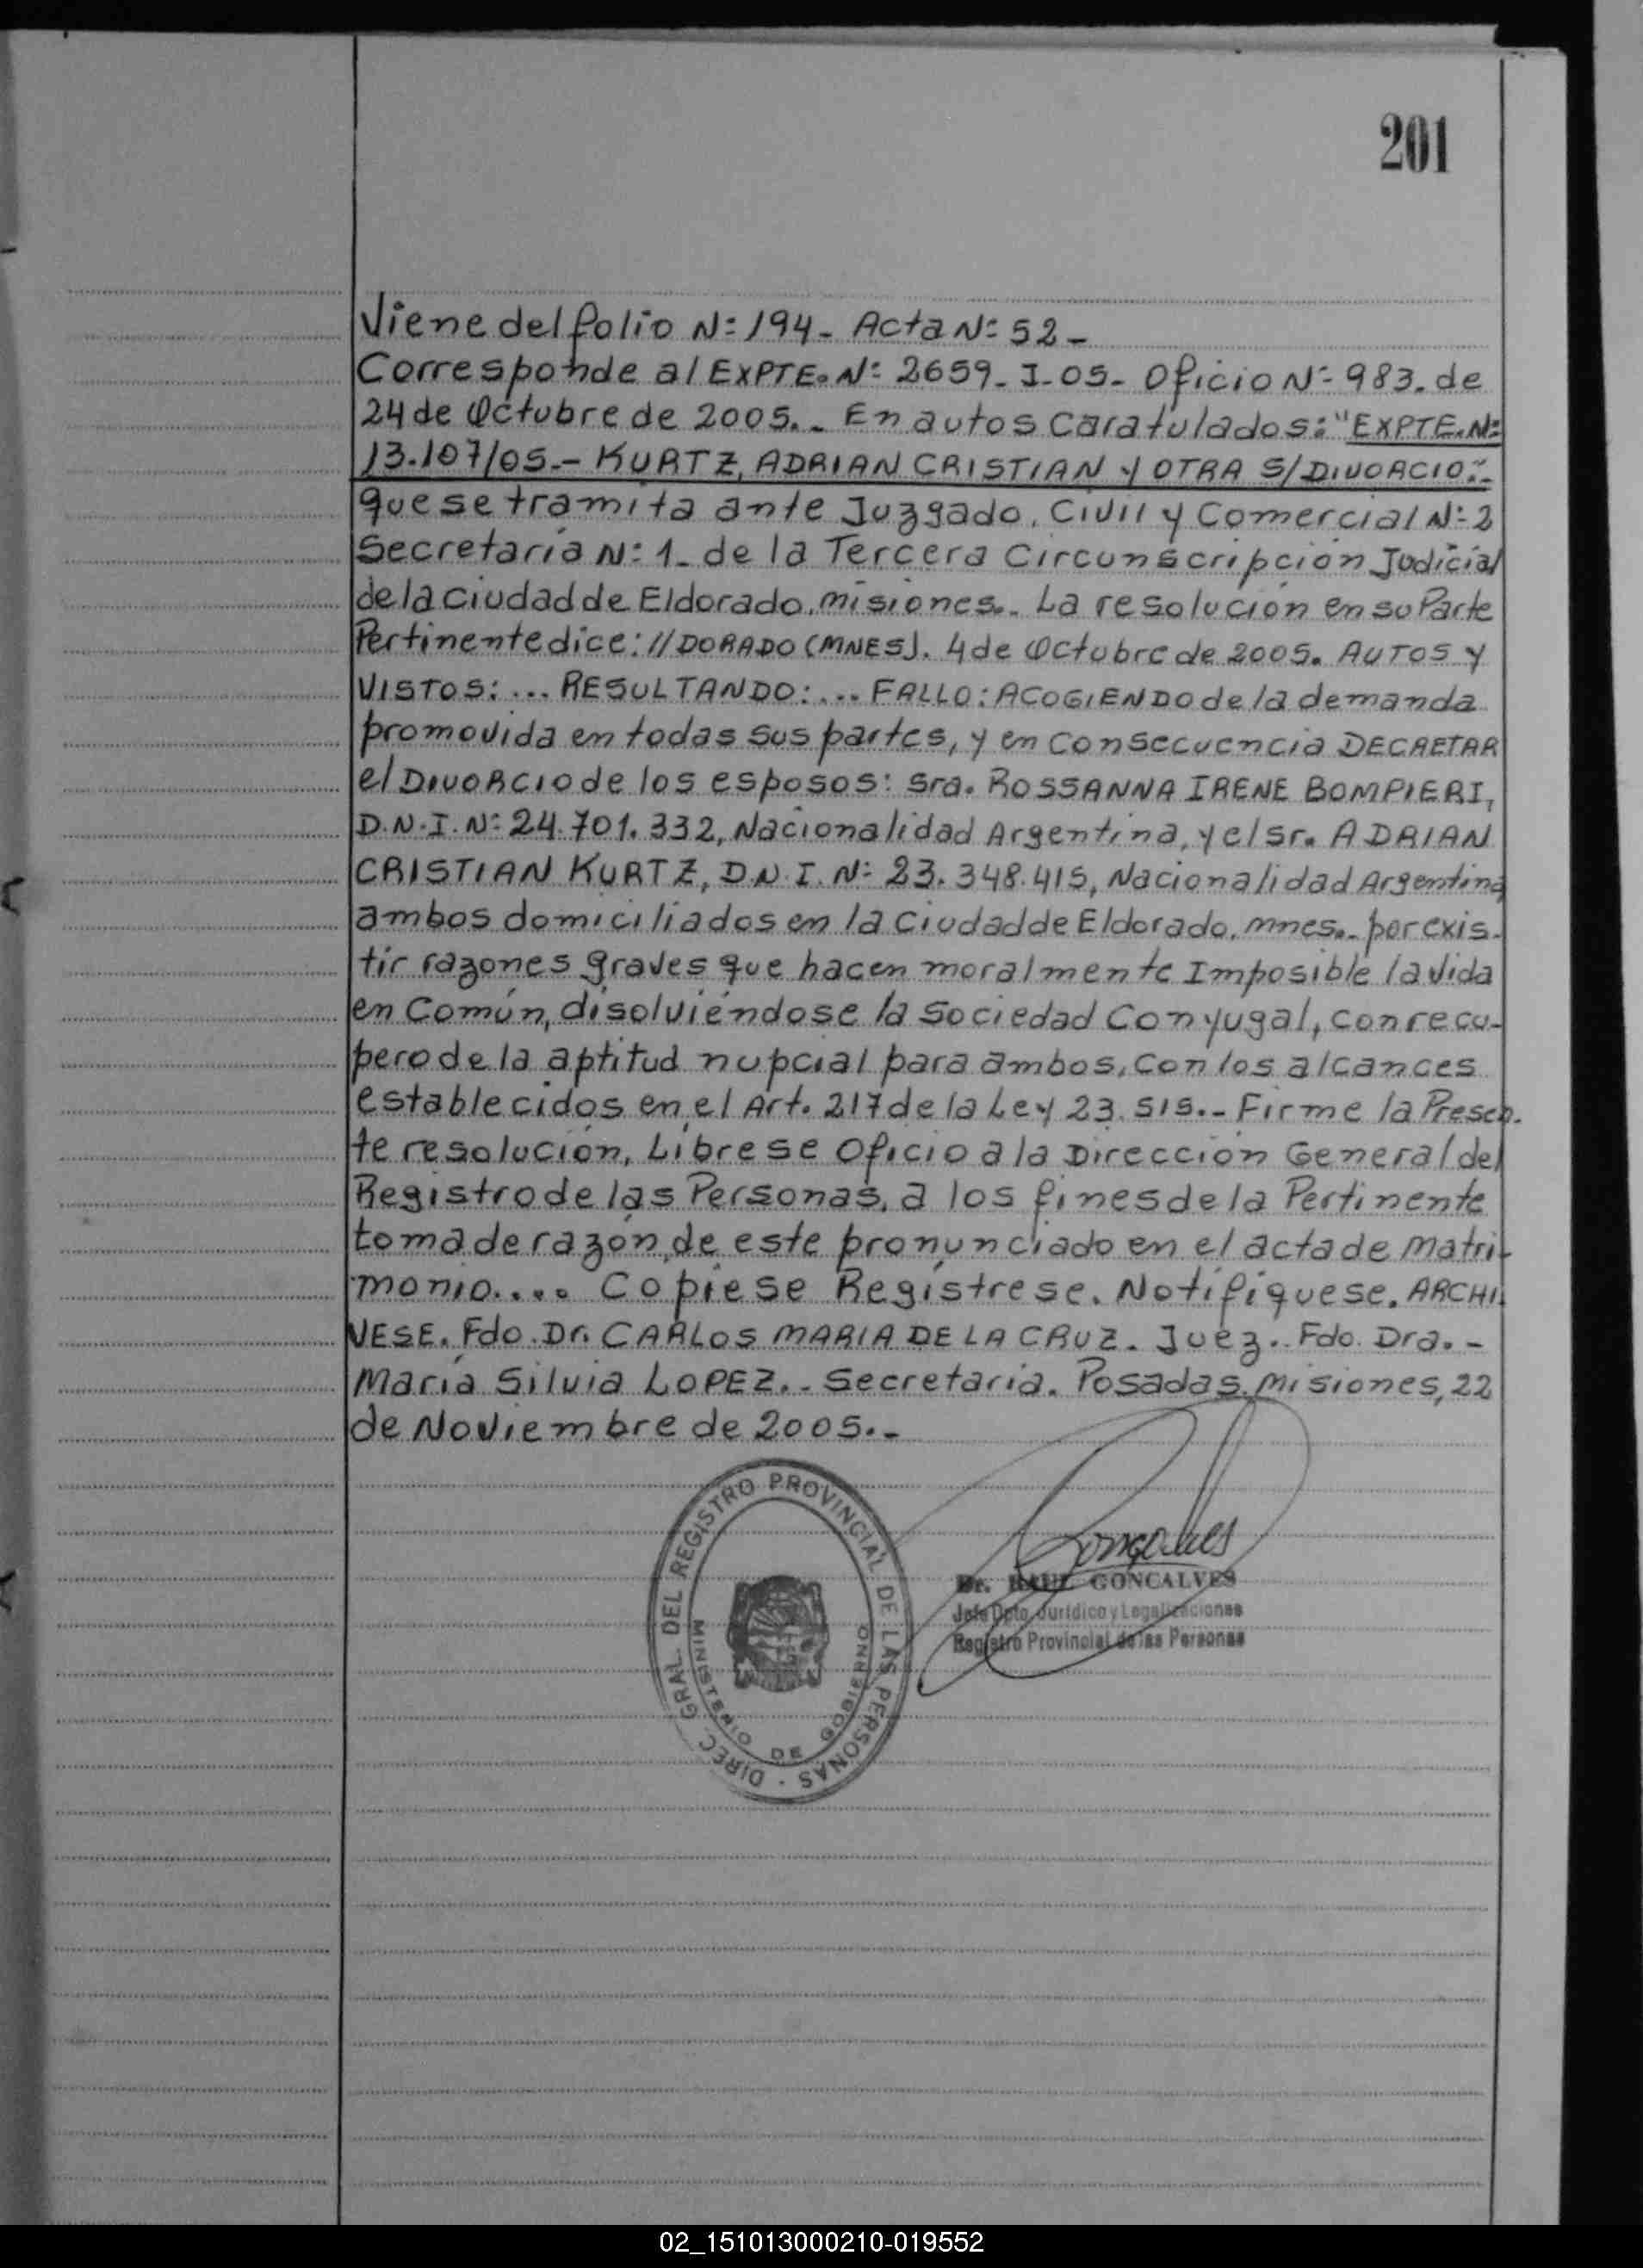 201
Viene del folio N: 194 - Acta N: 52 -
Corresponde al EXPTE. N: 2659 - I - 05 - Oficio N: 983. de
24 de Octubre de 2005. - En autos Caratulados: "EXPTE. N:
13.107/05. - KURTZ, ADRIAN CRISTIAN y OTRA S/DIVORCIO". -
que se tramita ante Juzgado, Civil y Comercial N: 2
Secretaría N: 1 - de la Tercera Circunscripción Judicial
de la ciudad de Eldorado. misiones. - La resolución en su Parte
Pertinente dice: //DORADO (MNES). 4 de Octubre de 2005. AUTOS y
VISTOS: ... RESULTANDO: ... FALLO: ACOGIENDO de la demanda
promovida en todas sus partes, y en Consecuencia DECRETAR
el DIVORCIO de los esposos: Sra. ROSSANNA IRENE BOMPIERI,
D.N.I. N: 24.701.332, Nacionalidad Argentina, y el Sr. ADRIAN
CRISTIAN KURTZ, D.N.I. N: 23.348.415, Nacionalidad Argentina
ambos domiciliados en la Ciudad de Eldorado. mnes. - por exis-
tir razones graves que hacen moralmente Imposible la vida
en Común, disolviéndose la Sociedad Conyugal, con recu-
pero de la aptitud nupcial para ambos, con los alcances
establecidos en el Art. 217 de la Ley 23.515. - Firme la Presen-
te resolución, Líbrese Oficio a la Dirección General del
Registro de las Personas, a los fines de la Pertinente
toma de razón, de este pronunciado en el acta de matri-
monio.... Copiese Regístrese. Notifíquese. ARCHI-
VESE. Fdo. Dr. CARLOS MARIA DE LA CRUZ. Juez. . Fdo. Dra. -
María Silvia LOPEZ. - Secretaria. Posadas. Misiones, 22
de Noviembre de 2005. -
DIREC. GRAL. DEL REGISTRO PROVINCIAL DE LAS PERSONAS
MINISTERIO DE GOBIERNO
Goncalves
Dr. RAUL GONCALVES
Jefe Dpto. Jurídico y Legalizaciones
Registro Provincial de las Personas
02_151013000210-019552